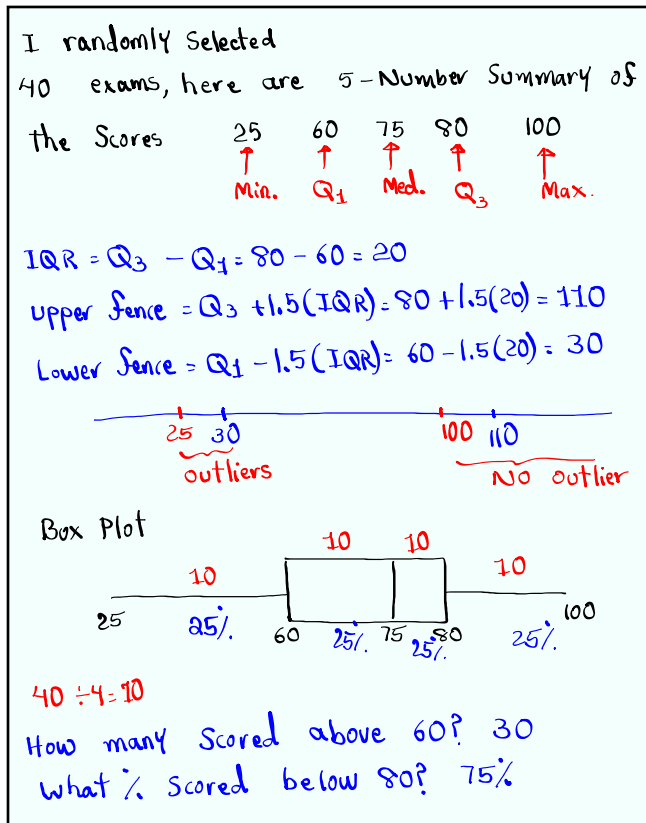 I randomly Selected
40 exams, here are 5-Number Summary of
the Scores 25 60 75 80 100
Min. Q1 Med. Q3 Max.
IQR = Q3 - Q1 = 80 - 60 = 20
Upper fence = Q3 + 1.5(IQR) = 80 + 1.5(20) = 110
Lower fence = Q1 - 1.5(IQR) = 60 - 1.5(20) = 30
25 30 100 110
outliers No outlier
Box Plot
10 10 10 10
25 60 75 80 100
25% 25% 25% 25%
40 ÷ 4 = 10
How many Scored above 60? 30
What % Scored below 80? 75%